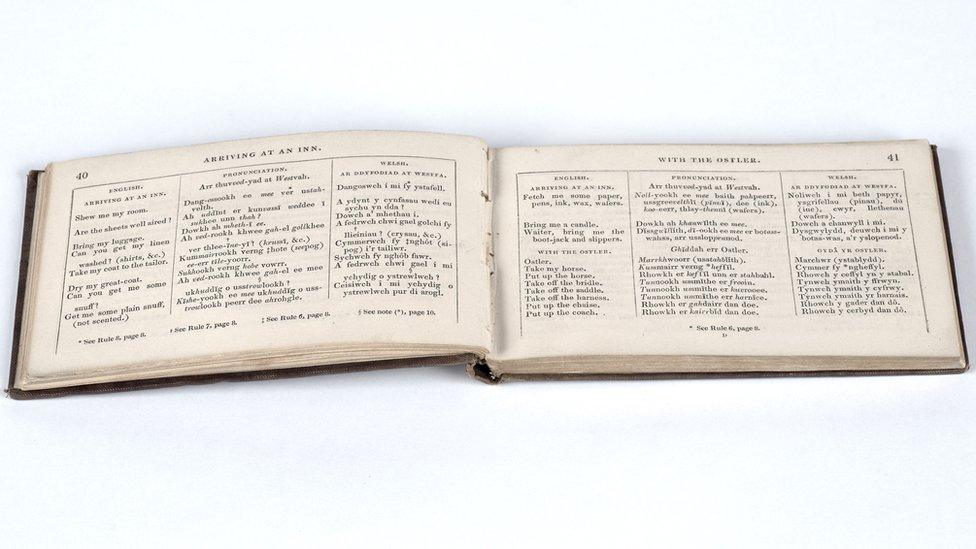 40
ARRIVING AT AN INN.
ENGLISH.
ARRIVING AT AN INN.
Shew me my room.
Are the sheets well aired?
Bring my luggage.
Can you get my linen
washed? (shirts, &c.)
Take my coat to the tailor.
Dry my great-coat.
Can you get me some
snuff?
Get me some plain snuff,
(not scented.)
PRONUNCIATION.
Arr thuvod-yad at Westvah.
Dang-ossookh ee mee ver ustah-
velth.
Ah uddint er kunvassi weddee i
sukhee unn thah?
Dowkh ah mheth-i ee.
Ah ved-rookh khwee gah-el gollkhee
ver thlee-ine-yi? (krussi, &c.)
Kummairrookh verng thote (seepog)
ee-err tile-yoorr.
Sukhookh verng hobe vowrr.
Ah ved-rookh khwee gah-el ee mee
ukhuddig o usstrewlookh?
Kishe-yookh ee mee ukhuddig o uss-
trowlookh peerr dee ahrohgle.
WELSH.
AR DDYFODIAD AT WESTFA.
Dangoswch i mi fy ystafell.
A ydynt y cynfasau wedi eu
sychu yn dda?
Dowch a' mhethau i.
A fedrwch chwi gael golchi fy
llieiniau? (crysau, &c.)
Cymmerwch fy 'nghôt (si-
pog) i'r tailiwr.
Sychwch fy nghôb fawr.
A fedrwch chwi gael i mi
ychydig o ystrewlwch?
Ceisiwch i mi ychydig o
ystrewlwch pur di arogl.
* See Rule 8, page 8.
† See Rule 7, page 8.
‡ See Rule 6, page 8.
§ See note (*), page 10.
WITH THE OSTLER.
41
ENGLISH.
ARRIVING AT AN INN.
Fetch me some paper,
pens, ink, wax, wafers.
Bring me a candle.
Waiter, bring me the
boot-jack and slippers.
WITH THE OSTLER.
Ostler.
Take my horse.
Put up the horse.
Take off the bridle.
Take off the saddle.
Take off the harness.
Put up the chaise.
Put up the coach.
PRONUNCIATION.
Arr thuvod-yad at Westvah.
Noli-yookh ee mee baith pahpeerr,
ussgreeveithli (pinai), dee (ink),
koo-eerr, thlay-thenni (wafers).
Dowkh ah khanwilth ee mee.
Dissgwilith, di-ookh ee mee er botass-
wahss, arr ussloppenod.
Ghiddah err Ostler.
Marrkhwoorr (usstabllith).
Kummair verng *heffil.
Rhowkh er keffil unn er stahbahl.
Tunnookh usmithe er frooin.
Tunnookh usmithe er kuvrooee.
Tunnookh usmithe er harnice.
Rhowkh er gahdairr dan doe.
Rhowkh er kairrbid dan doe.
WELSH.
AR DDYFODIAD AT WESTFA.
Noliwch i mi beth papyr,
ysgrifellau (pinau), du
(inc), cwyr, llethenau
(wafers).
Dowch a chanwyll i mi.
Dysgwylydd, deuwch i mi y
botas-was, a'r yslopenod.
GYDÂ YR OSTLER.
Marchwr (ystablydd).
Cymmer fy *ngheffyl.
Rhowch y ceffyl yn y stabal.
Tynwch ymaith y ffrwyn.
Tynwch ymaith y cyfrwy.
Tynwch ymaith yr harnais.
Rhowch y gader dan dô.
Rhowch y cerbyd dan dô.
* See Rule 6, page 8.
D